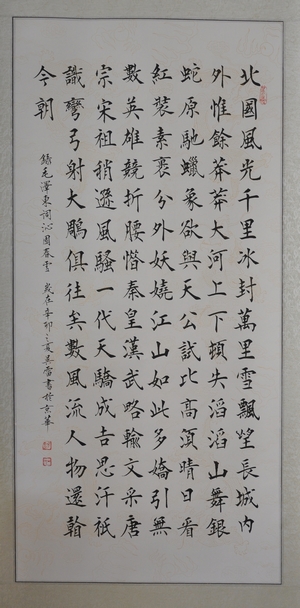 北國風光千里冰封萬里雪飄望長城内
外惟餘莽莽大河上下頓失滔滔山舞銀
蛇原馳蠟象欲與天公試比高須晴日看
紅裝素裹分外妖嬈江山如此多嬌引無
數英雄競折腰惜秦皇漢武略輸文采唐
宗宋祖稍遜風騷一代天驕成吉思汗祇
識彎弓射大鵰俱往矣數風流人物還看
今朝
錄毛澤東詞沁園春雪 歲在辛卯之夏吴雷書於京華